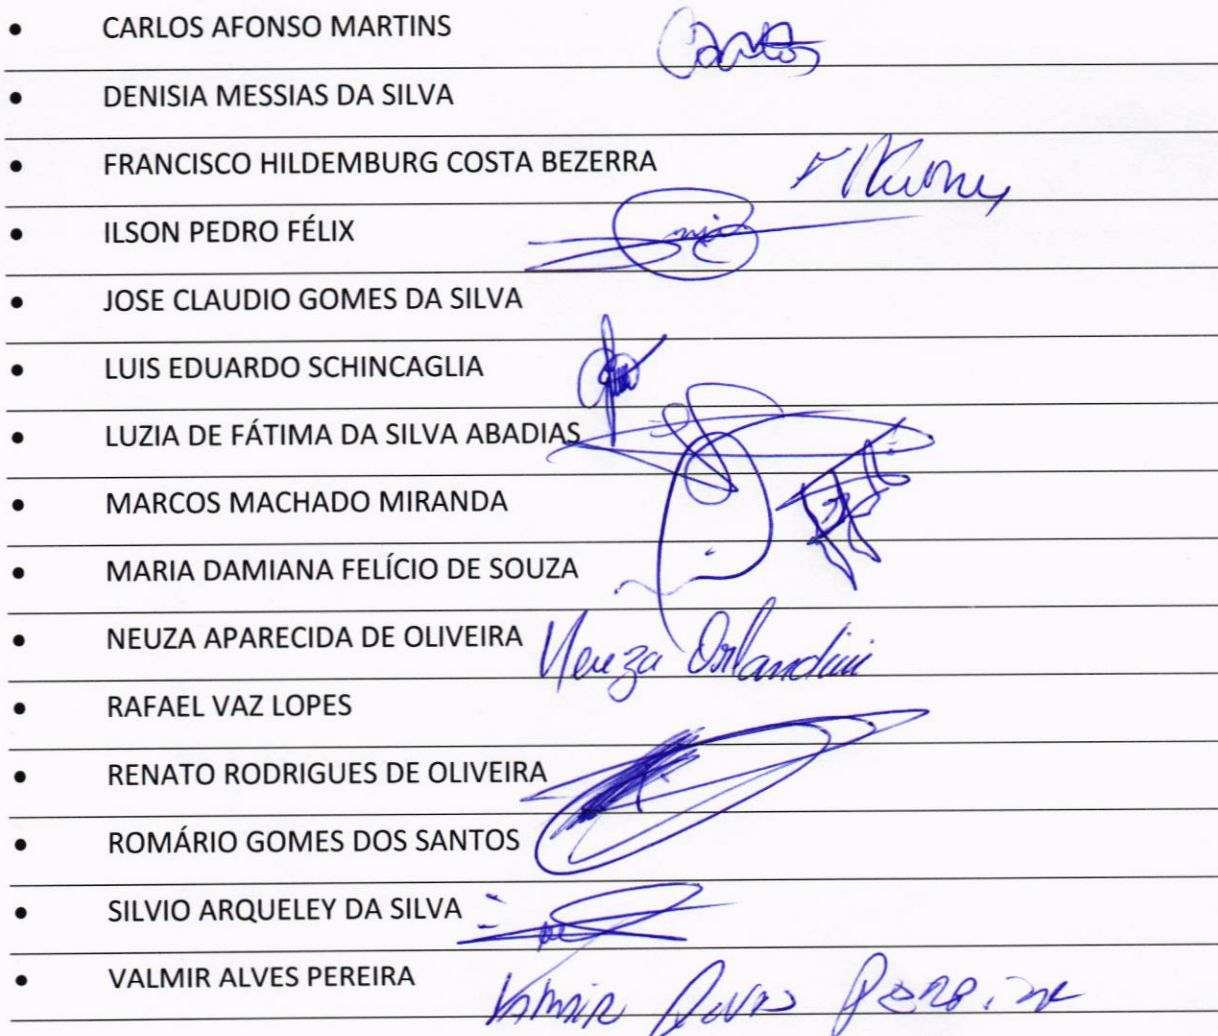 • CARLOS AFONSO MARTINS Carlos
• DENISIA MESSIAS DA SILVA
• FRANCISCO HILDEMBURG COSTA BEZERRA
• ILSON PEDRO FÉLIX
• JOSE CLAUDIO GOMES DA SILVA
• LUIS EDUARDO SCHINCAGLIA
• LUZIA DE FÁTIMA DA SILVA ABADIAS
• MARCOS MACHADO MIRANDA
• MARIA DAMIANA FELÍCIO DE SOUZA
• NEUZA APARECIDA DE OLIVEIRA Neuza Orlandini
• RAFAEL VAZ LOPES
• RENATO RODRIGUES DE OLIVEIRA
• ROMÁRIO GOMES DOS SANTOS
• SILVIO ARQUELEY DA SILVA
• VALMIR ALVES PEREIRA Valmir Alves Pereira